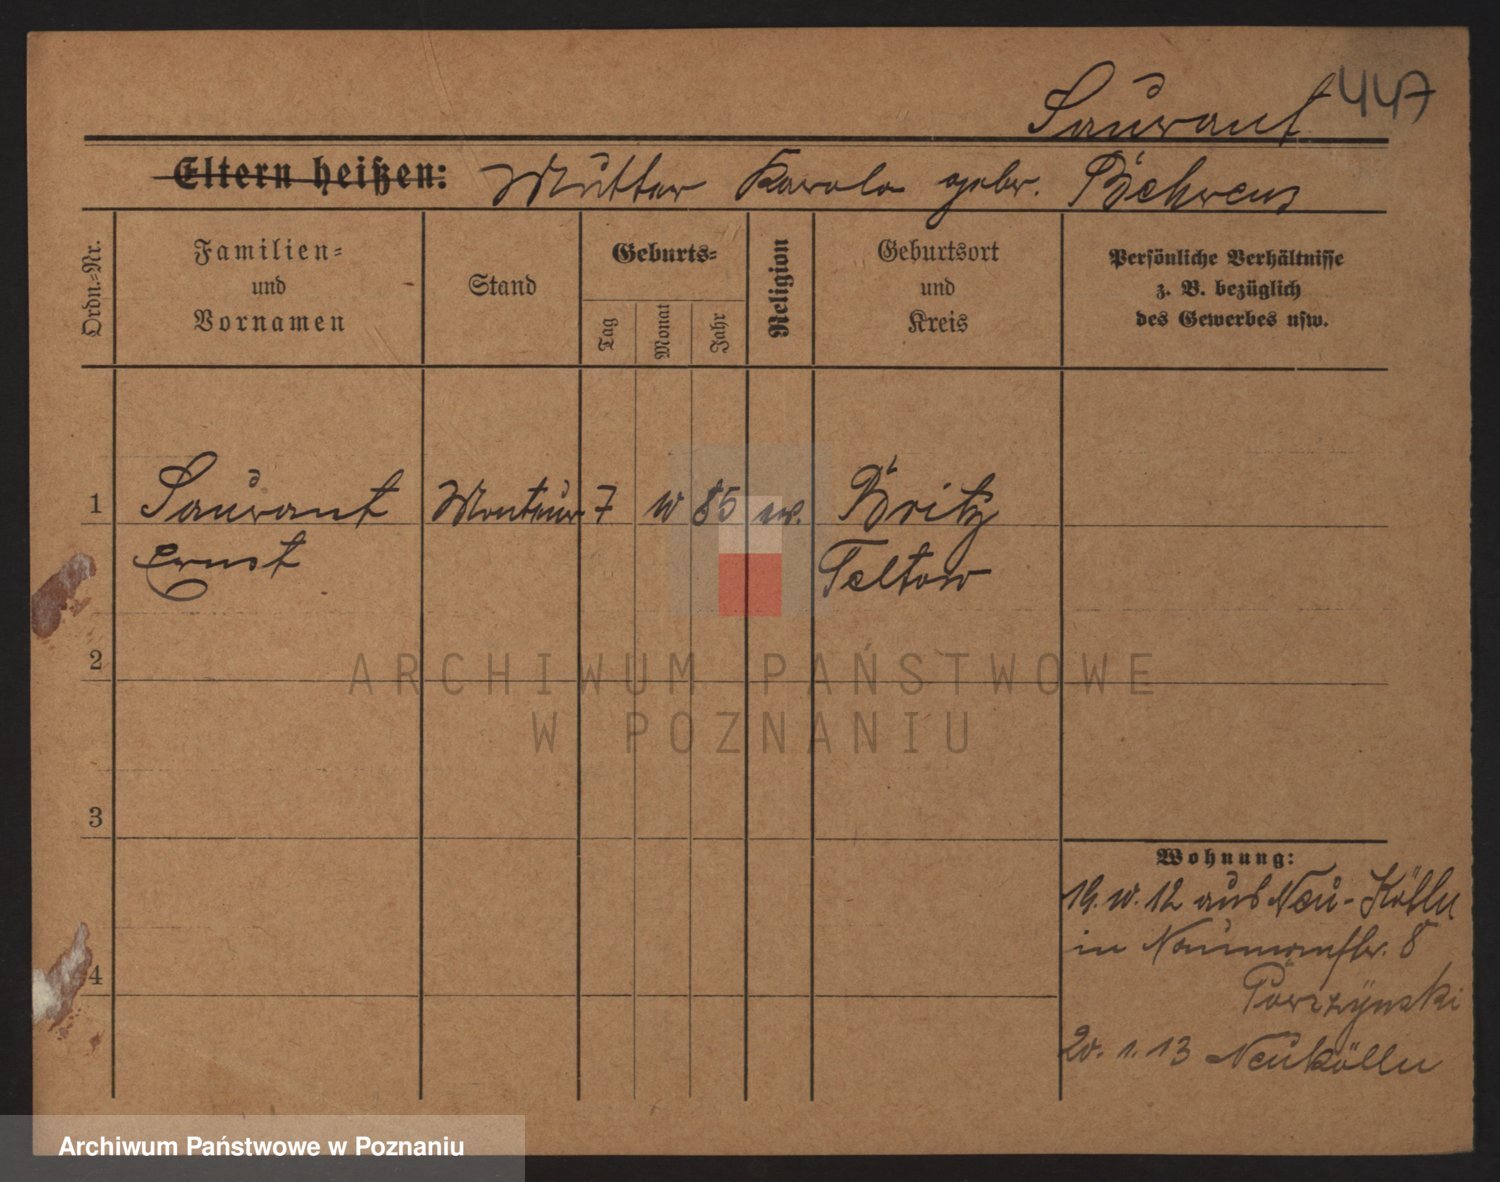 Saurant 447
Eltern heißen: Mutter Karola gebr. Behrens
Ordn.=Nr.
Familien=
und
Vornamen
Stand
Geburts=
Tag
Monat
Jahr
Religion
Geburtsort
und
Kreis
Persönliche Verhältnisse
z. B. bezüglich
des Gewerbes usw.
1 Saurant Monteur 7 85 Britz
Ernst Teltow
2
ARCHIWUM PAŃSTWOWE
W POZNANIU
3
Wohnung:
19. 12 aus Neu-Kölln
in 8
4
Porzÿnski
20. 1. 13 Neukölln
Archiwum Państwowe w Poznaniu